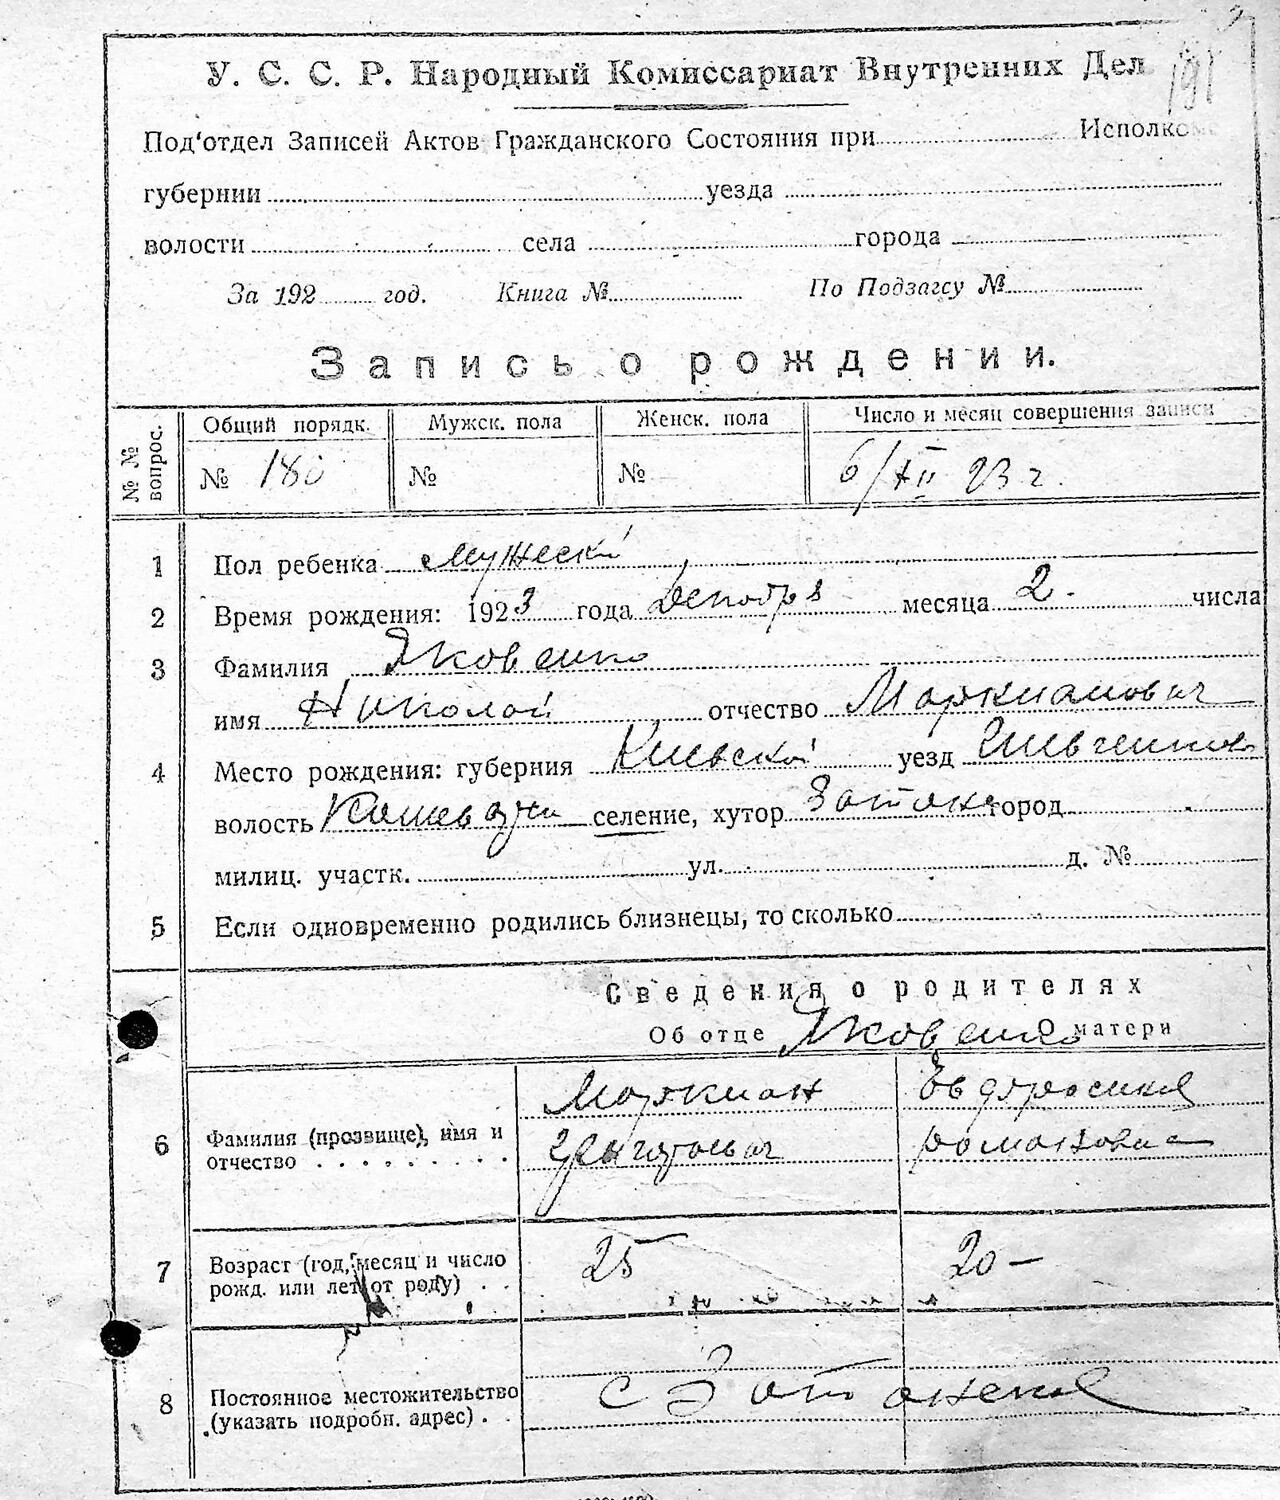 191
У. С. С. Р. Народный Комиссариат Внутренних Дел
Под'отдел Записей Актов Гражданского Состояния при Исполком
губернии уезда
волости села города
За 192 год. Книга № По Подзагсу №
Запись о рождении.
№ № вопрос. Общий порядк. Мужск. пола Женск. пола Число и месяц совершения записи
№ 180 № № 6/XII 23 г.
1 Пол ребенка мужеский
2 Время рождения: 1923 года Декабря месяца 2. числа
3 Фамилия Яковенко
имя Николай отчество Маркианович
4 Место рождения: губерния Киевской уезд Шевченков
волость селение, хутор город
милиц. участк. ул. д. №
5 Если одновременно родились близнецы, то сколько
Сведения о родителях
Об отце Яковенко О матери
Маркиан Евдросиния
6 Фамилия (прозвище), имя и
отчество Григорьевич Романовна
7 Возраст (год, месяц и число
рожд. или лет от роду) 25 20 —
8 Постоянное местожительство
(указать подробн. адрес) с